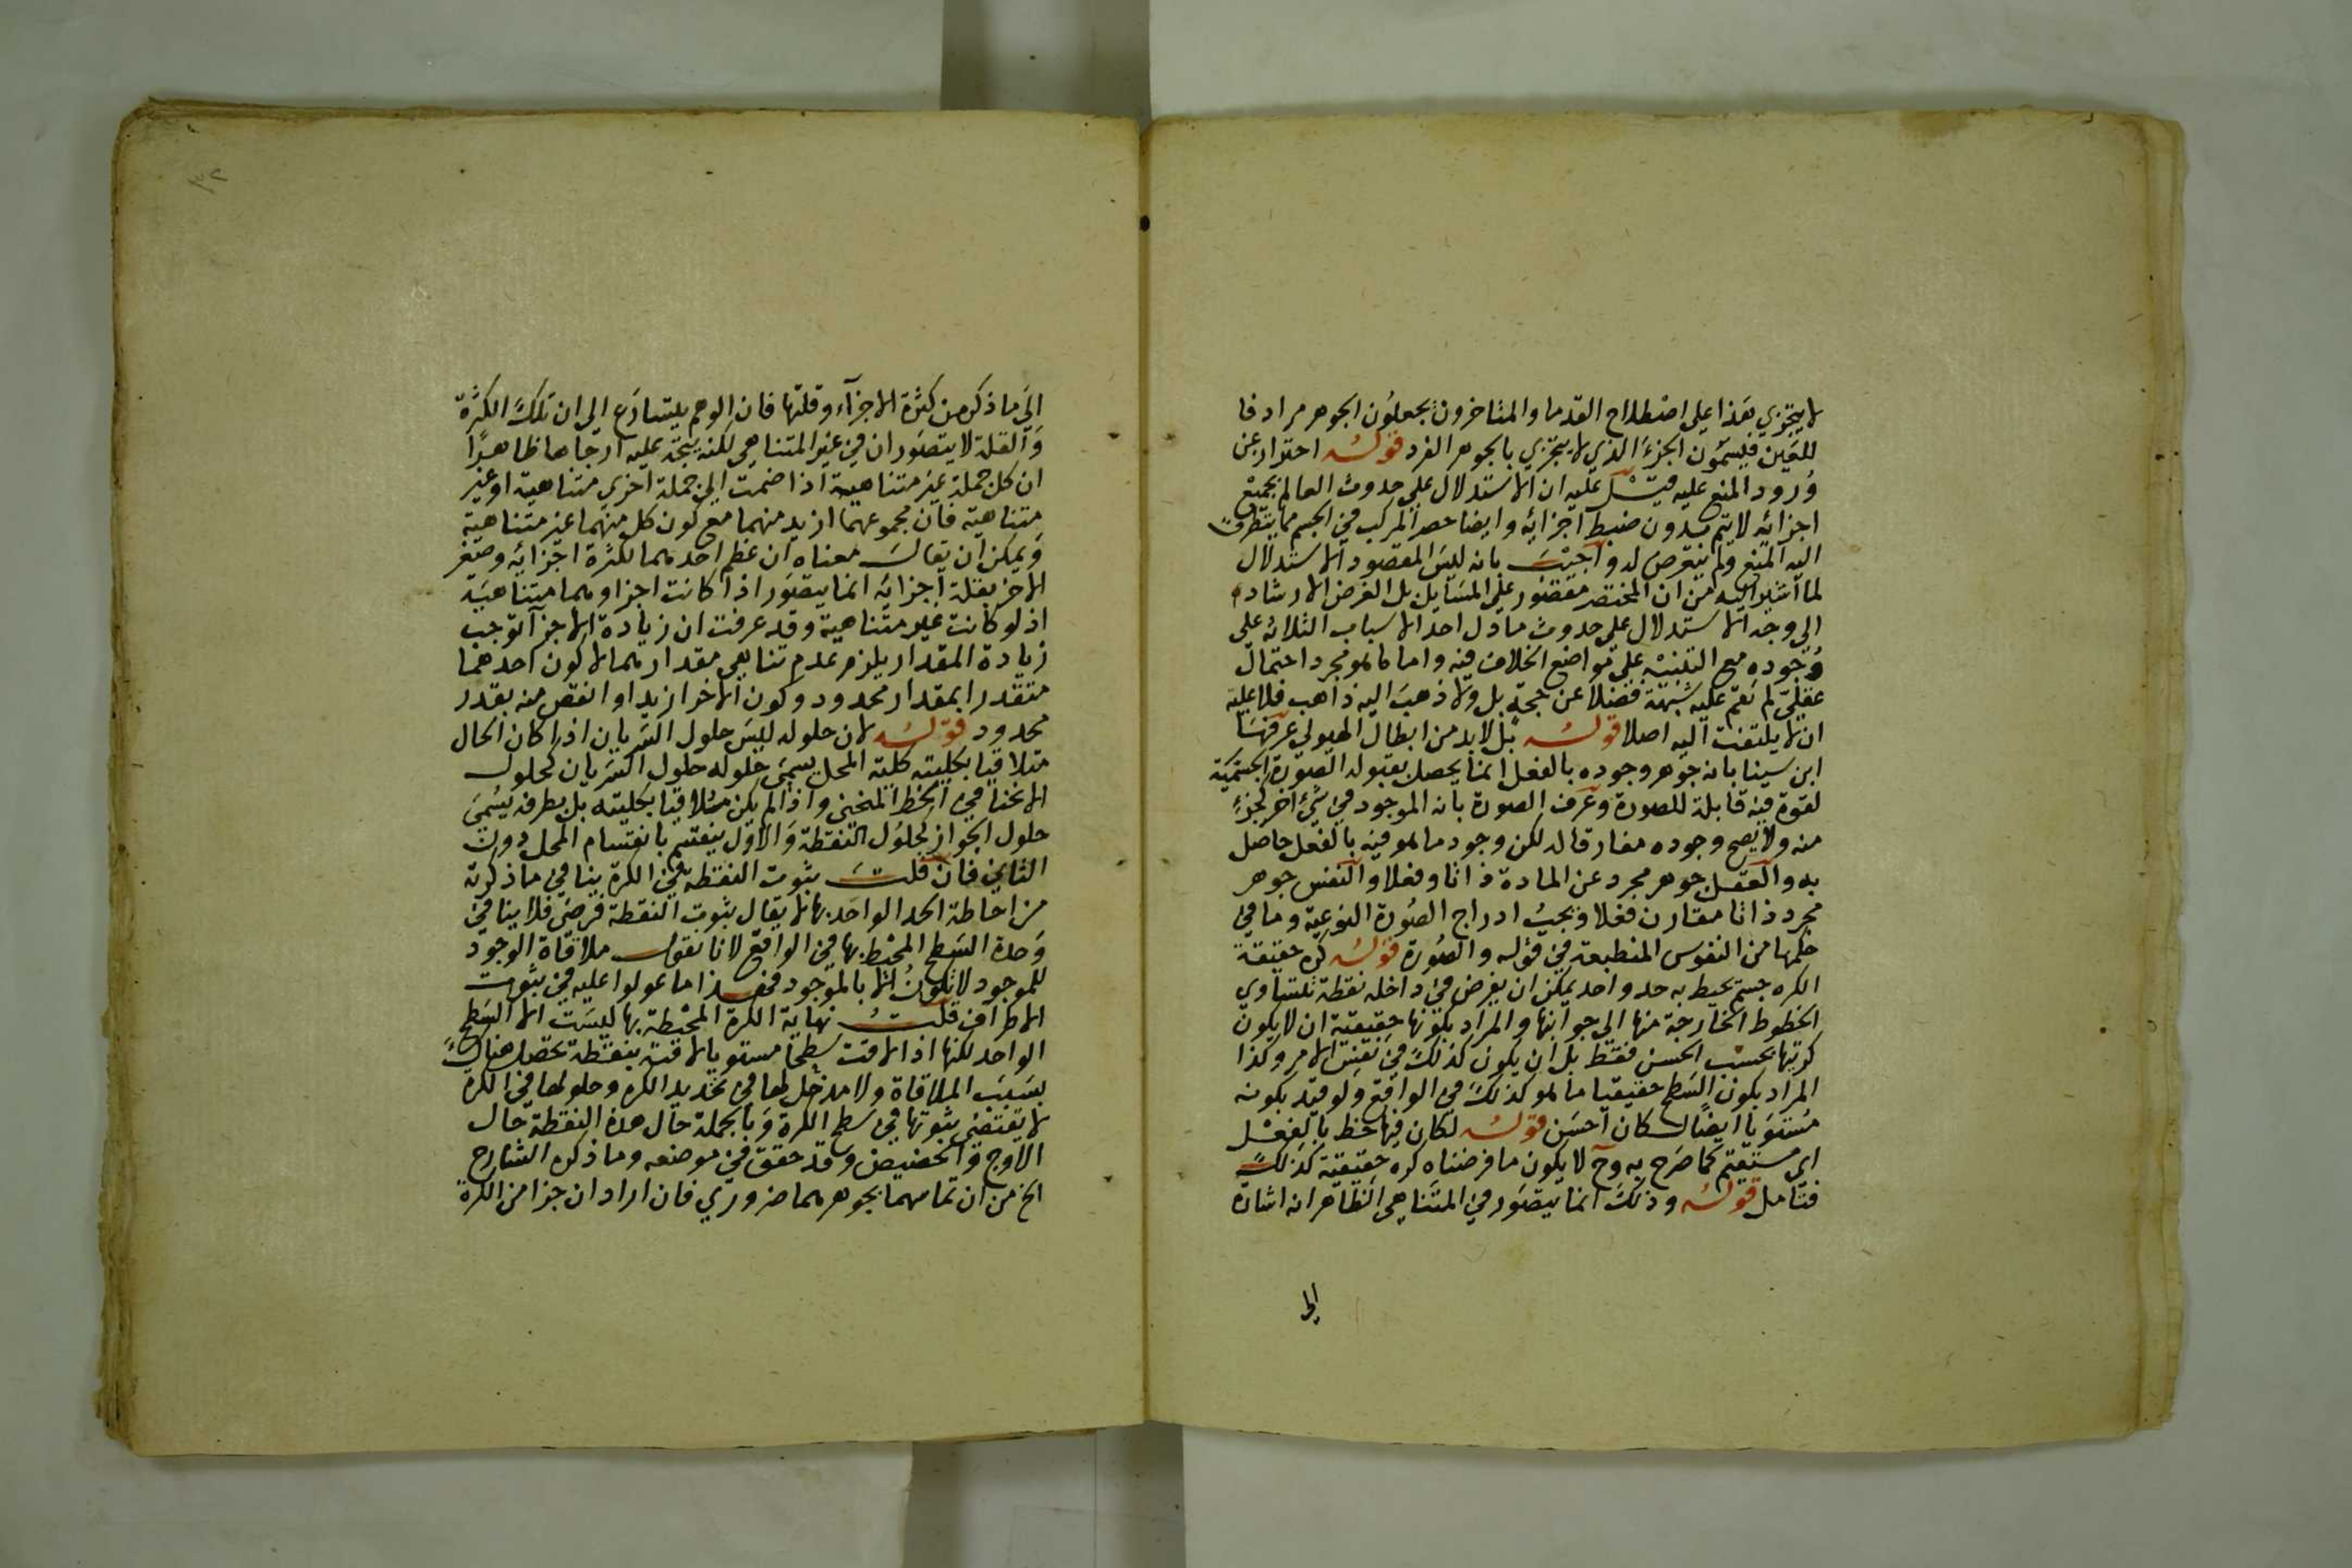 لا يتجزي بهذا علي اصطلاح القدما والمتاخرون يجعلون الجوهر مرادفا
للعين فيسمون الجزء الذي لا يتجزي بالجوهر الفرد قوله احترازا عن
ورود المنع عليه قيل عليه ان الاستدلال علي حدوث العالم بجميع
اجزائه لا يتم بدون ضبط اجزائه وايضا حصر المركب في الجسم مما يتطرق
اليه المنع ولم يتعرض له واجيب بانه ليس المقصود الاستدلال
لما اشير اليه من ان المختصر مقصور علي المسايل بل الغرض الارشاد
الي وجه الاستدلال علي حدوث ما دل احد الاسباب الثلاثه علي
وجوده مع التنبيه علي مواضع الخلاف فيه واما ما هو مجرد احتمال
عقلي لم تقم عليه شبهة فضلا عن حجة بل ولا ذهب اليه ذاهب فلا عليه
ان لا يلتفت اليه اصلا قوله بل لابد من ابطال الهيولي عرفها
ابن سينا بانه جوهر وجوده بالفعل انما يحصل بقبوله الصورة الجسمية
لقوة فيه قابلة للصورة وعرف الصورة بانه الموجود في شيء اخر لجزء
منه ولا يصح وجوده مفارقا له لكن وجود ما هو فيه بالفعل حاصل
به والعقل جوهر مجرد عن المادة ذاتا وفعلا والنفس جوهر
مجرد ذاتا مقارن فعلا ويجب ادراج الصورة النوعية وما في
حكمها من النفوس المنطبعة في قوله والصورة قوله كره حقيقة
الكره جسم يحيط به حد واحد يمكن ان يفرض في داخله نقطة تتساوي
الخطوط الخارجة منها الي جوانبها والمراد بكونها حقيقية ان لا يكون
كريتها بحسب الحس فقط بل ان يكون كذلك في نفس الامر وكذا
المراد بكون السطح حقيقيا ما هو كذلك في الواقع ولو قيد بكونه
مستويا ايضا لكان احسن قوله لكان فيها خط بالفعل
اي مستقيم كما صرح به وح لا يكون ما فرضناه كره حقيقية كذلك
فتامل قوله وذلك انما يتصور في المتناهي الظاهر انه اشارة
الي
٣٢
الي ما ذكره من كثرة الاجزاء وقلتها فان الوهم يتسارع الي ان تلك الكثرة
والقلة لا يتصوران في غير المتناهي لكنه يتجه عليه ان
ان كل جملة غير متناهية اذا ضمت الي جملة اخري متناهية او غير
متناهية فان مجموعهما ازيد منهما مع كون كل منهما غير متناهية
ويمكن ان يقال معناه ان عظم احدهما لكثرة اجزائه وصغر
الاخر بقلة اجزايه انما يتصور اذا كانت اجزاوهما متناهية
اذ لو كانت غير متناهية وقد عرفت ان زيادة الاجزا توجب
زيادة المقدار يلزم عدم تناهي مقدارهما لا كون احدهما
متقدرا بمقدار محدود وكون الاخر ازيد او انقص منه بقدر
محدود قوله لان حلوله ليس حلول السريان اذا كان الحال
متلاقيا بكليته كلية المحل يسمي حلوله حلول السريان كحلول
الانحنا في الخط المنحني واذا لم يكن ملاقيا بكليته بل بطرفه يسمي
حلول الجوار كحلول النقطة والاول ينقسم بانقسام المحل دون
الثاني فان قلت ثبوت النقطة في الكرة ينافي ما ذكرته
من احاطة الحد الواحد بها لا يقال ثبوت النقطة فرضي فلا ينافي
وحدة السطح المحيط بها في الواقع لانا نقول ملاقاة الوجود
للموجود لا تكون الا بالموجود فهذا ما عولوا عليه في ثبوت
الاطراف قلت نهاية الكرة المحيطة بها ليست الا السطح
الواحد لكنها اذا لاقت سطحا مستويا لاقته بنقطة تحصل هناك
بسبب الملاقاة ولا مدخل لها في تحديد الكرة وحلولها في الكرة
لا يقتضي ثبوتها في سطح الكرة وبالجملة حال هذه النقطة حال
الاوج والحضيض وقد حقق في موضعه وما ذكره الشارح
الخ من ان تماسهما بجوهرهما ضروري فان اراد ان جزا من الكرة